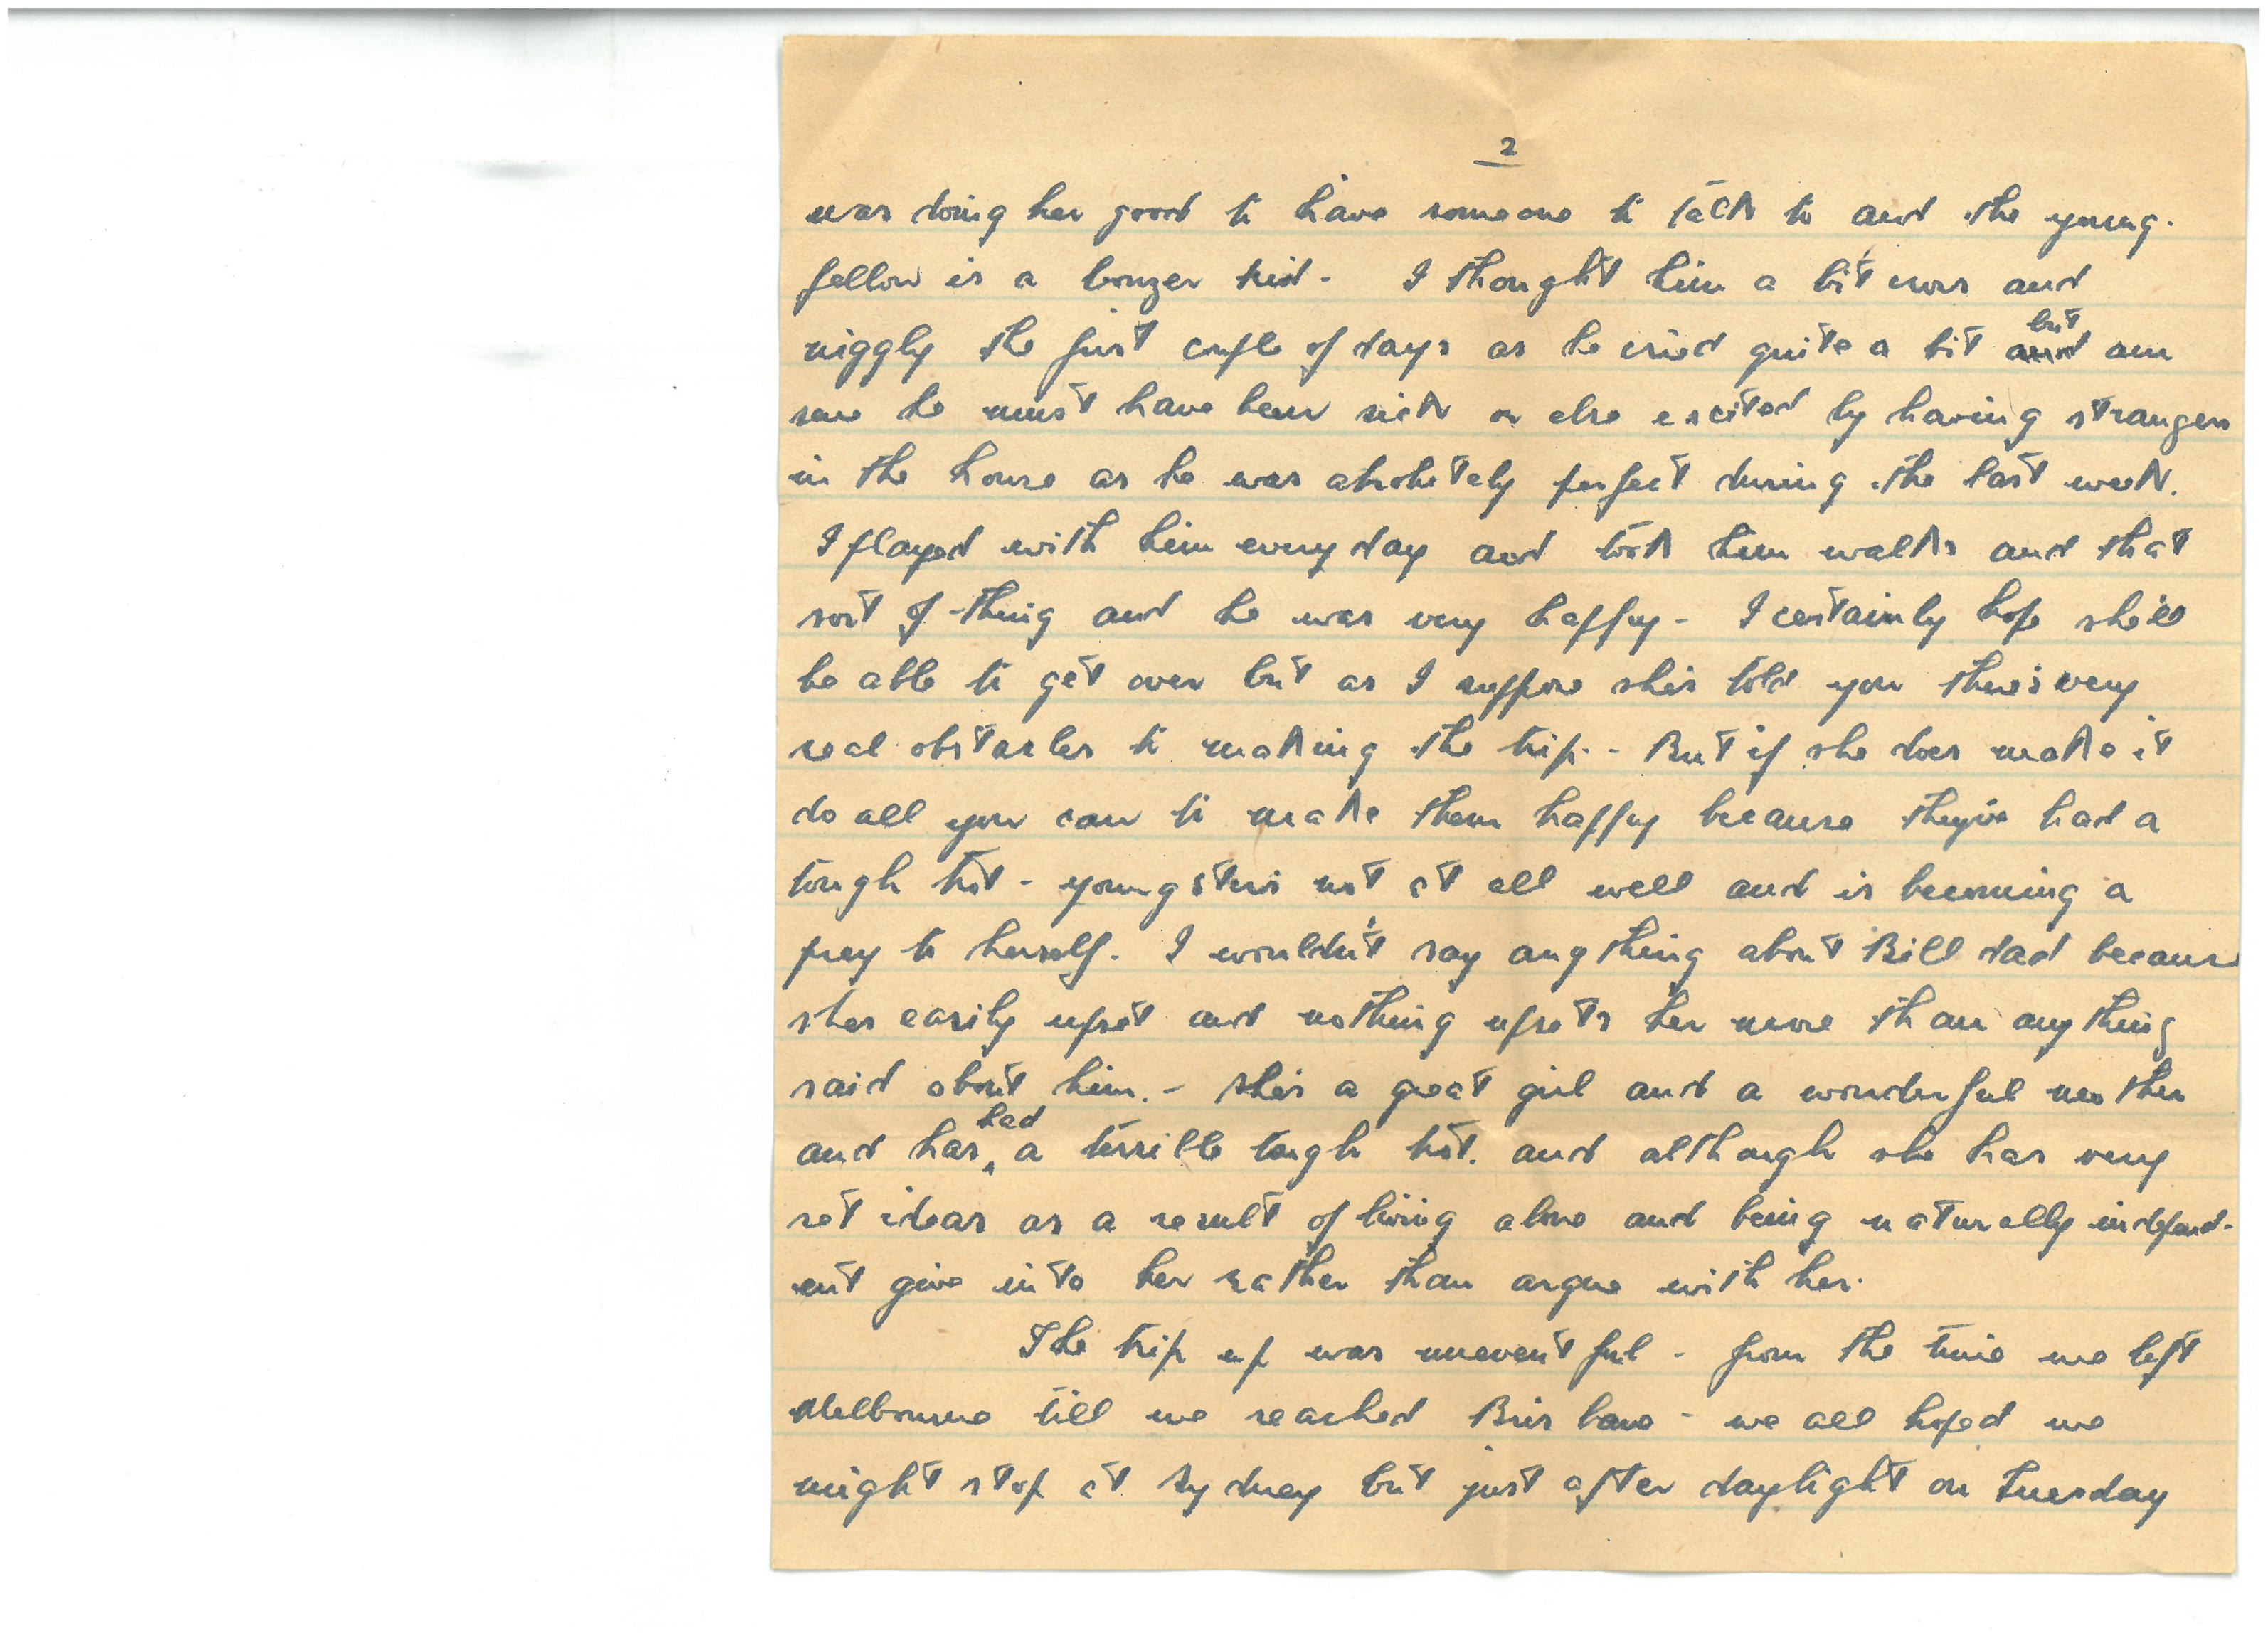 2
was doing her good to have someone to talk to and the young.
fellow is a bonzer kid - I thought him a bit cross and
niggly the first couple of days as he cried quite a bit and but am
sure he must have been sick or else excited by having strangers
in the house as he was absolutely perfect during the last week.
I played with him every day and took him walks and that
sort of thing and he was very happy - I certainly hope she'll
be able to get over but as I suppose she's told you there's very
real obstacles to making the trip. - But if she does make it
do all you can to make them happy because they've had a
tough trot - youngster's not at all well and is becoming a
prey to herself. I wouldn't say anything about Bill dad because
shes easily upset and nothing upsets her more than anything
said about him. - She's a great girl and a wonderful mother
and has had a terrible tough trot. and although she has very
set ideas as a result of living alone and being naturally independ-
ent give in to her rather than argue with her.
The trip up was uneventful - from the time we left
Melbourne till we reached Brisbane - we all hoped we
might stop at Sydney but just after daylight on Tuesday